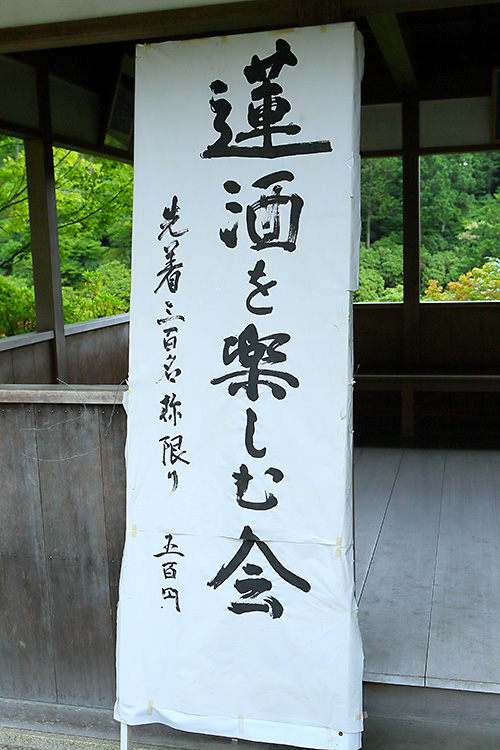 蓮酒を楽しむ会
先着三百名様限り
五百円